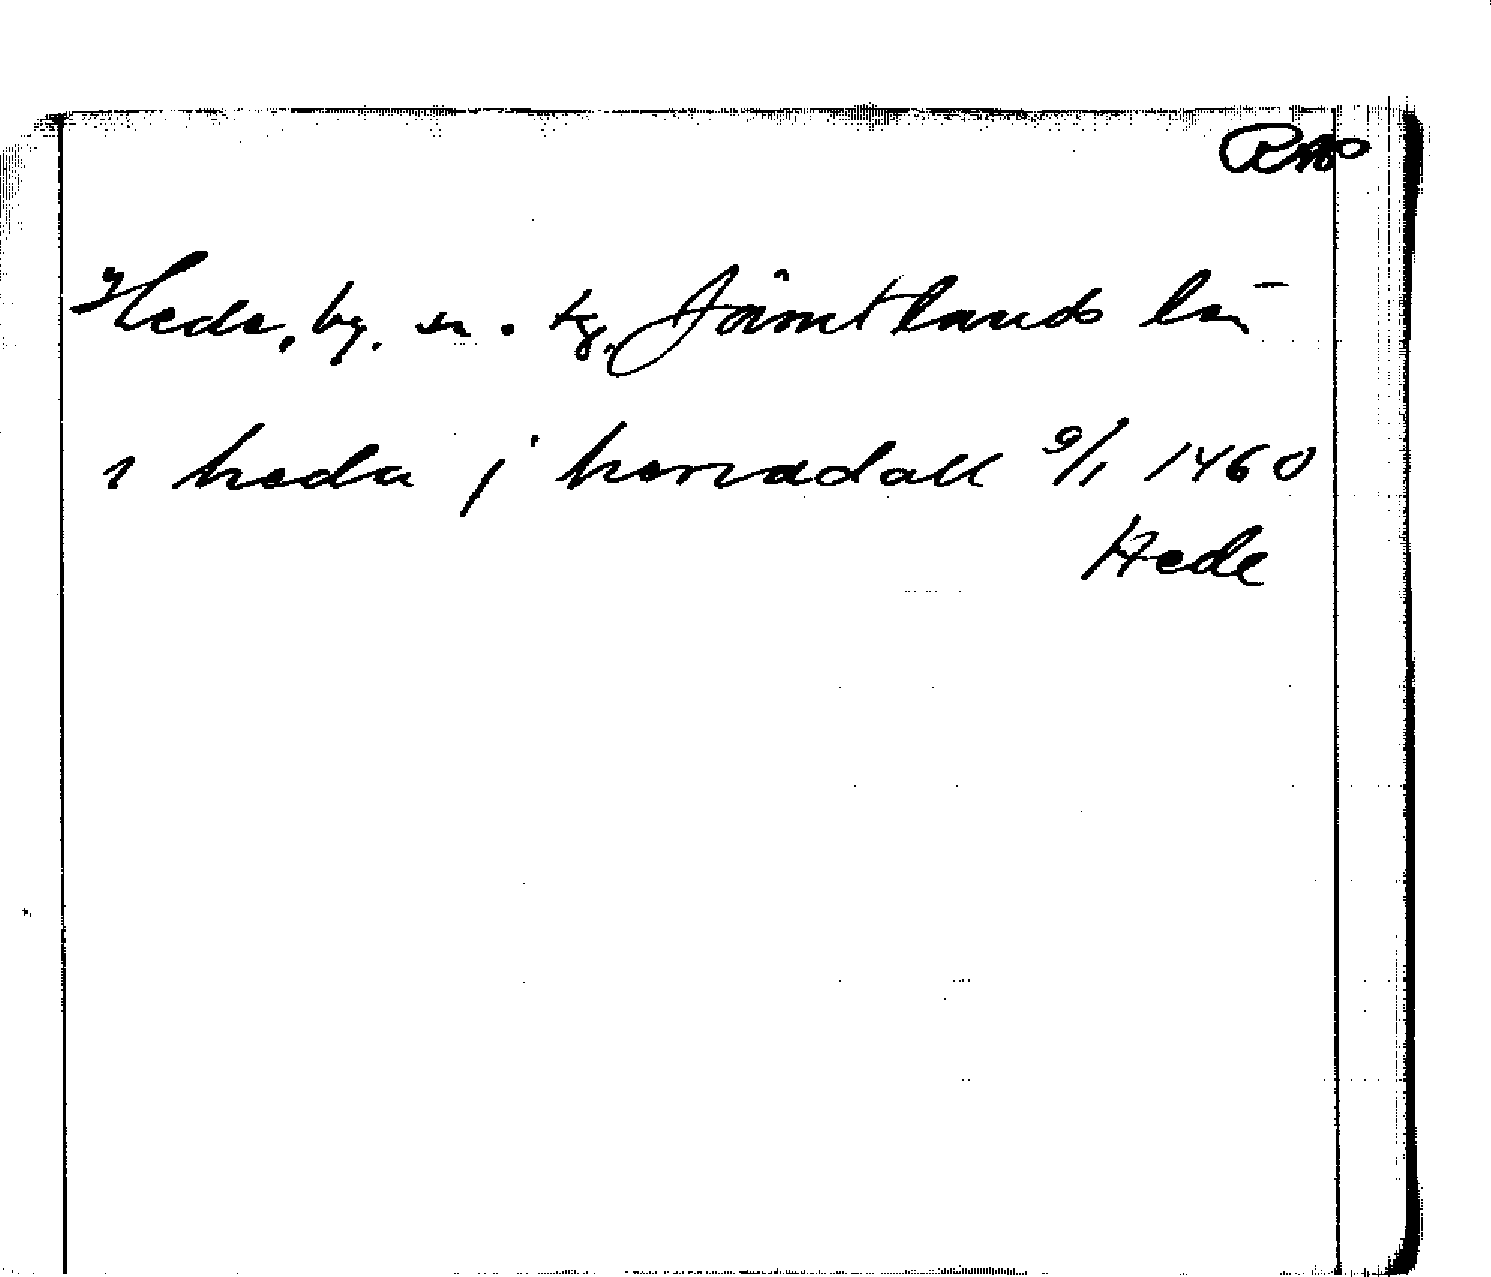 Hede, by, sn. tg, Jämtlands län
i heda j herradall 9/1 1460
Hede